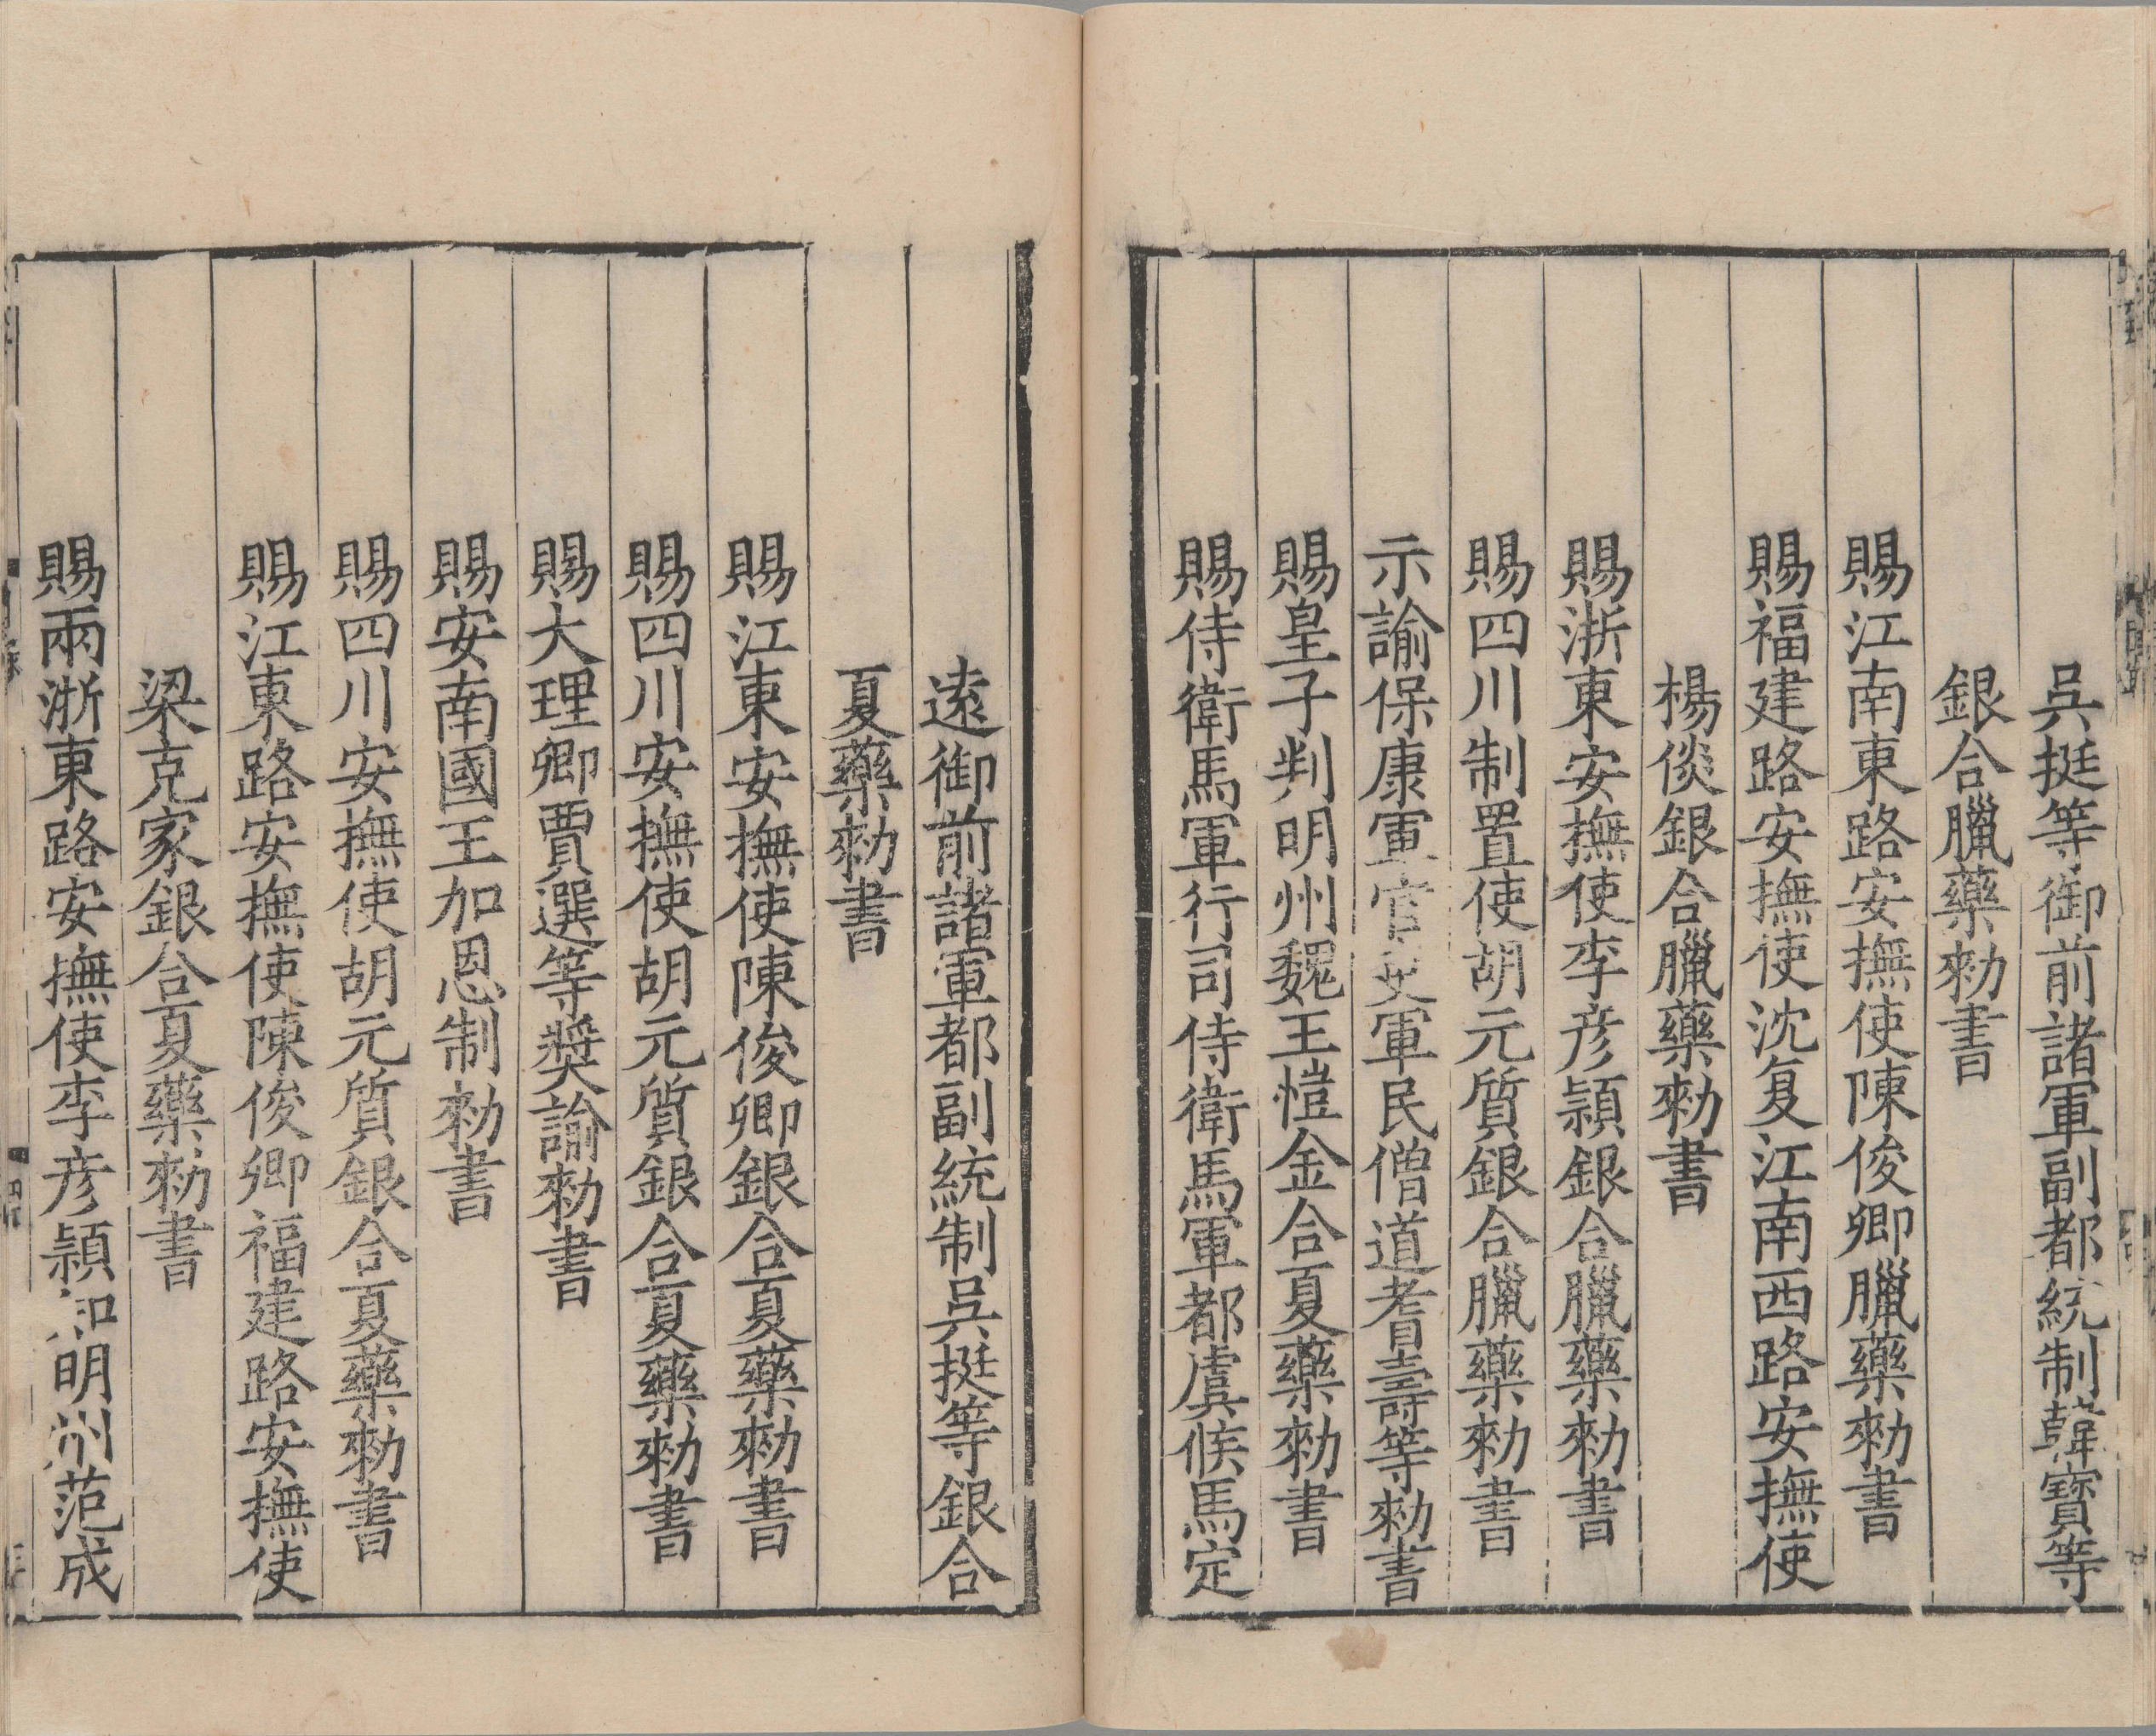 吳挺等御前諸軍副都統制韓寶等
銀合臘藥勑書
賜江南東路安撫使陳俊卿臘藥勑書
賜福建路安撫使沈复江南西路安撫使
楊倓銀合臘藥勑書
賜浙東安撫使李彦頴銀合臘藥勑書
賜四川制置使胡元質銀合臘藥勑書
示諭保康軍官吏軍民僧道耆壽等勑書
賜皇子判明州魏王愷金合夏藥勑書
賜侍衛馬軍行司侍衛馬軍都虞候馬定
遠御前諸軍都副統制吳挺等銀合
夏藥勑書
賜江東安撫使陳俊卿銀合夏藥勑書
賜四川安撫使胡元質銀合夏藥勑書
賜大理卿賈選等奬諭勑書
賜安南國王加恩制勑書
賜四川安撫使胡元質銀合夏藥勑書
賜江東路安撫使陳俊卿福建路安撫使
梁克家銀合夏藥勑書
賜兩浙東路安撫使李彦頴知明州范成